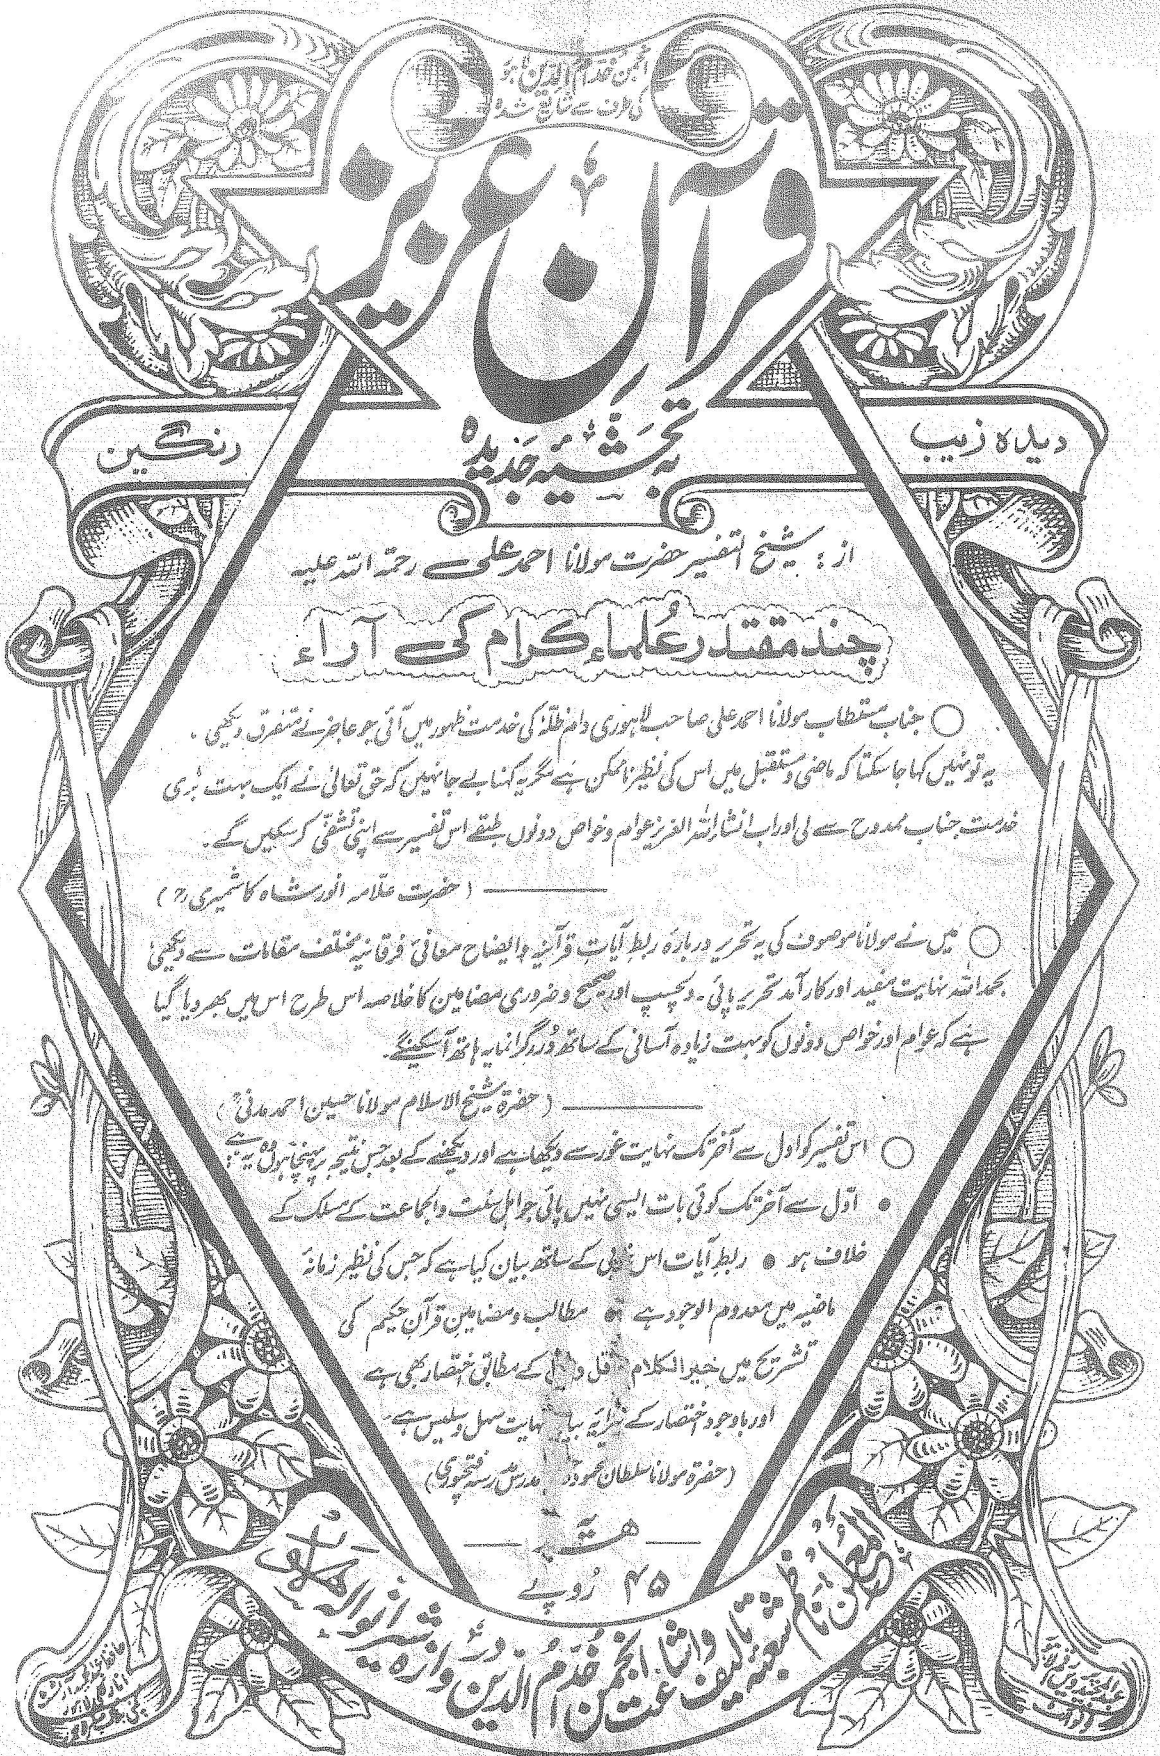 انجمن خدام الدین لاہور
کی طرف سے شائع شدہ
قرآن عزیز
دیدہ زیب
رنگین
بہ تحشیہ جدیدہ
از : شیخ التفسیر حضرت مولانا احمد علی رحمۃ اللہ علیہ
چند مقتدر عُلماء کرام کی آراء
جناب مستطاب مولانا احمد علی صاحب لاہوری دام ظلہ کی خدمت ظہور میں آئی جو عاجز نے متفرق دیکھی ۔
یہ تو نہیں کہا جا سکتا کہ ماضی و مستقبل میں اس کی نظیر ناممکن ہے مگر یہ کہنا بے جا نہیں کہ حق تعالیٰ نے ایک بہت بڑی
خدمت جناب ممدوح سے لی اور اب انشاء اللہ العزیز عوام و خواص دونوں طبقے اس تفسیر سے اپنی تشفی کر سکیں گے ۔
( حضرت علامہ انور شاہ کاشمیری رح )
میں نے مولانا موصوف کی یہ تحریر دربارہ ربط آیات قرآنیہ و ایضاح معانی فرقانیہ مختلف مقامات سے دیکھی
بحمد اللہ نہایت مفید اور کارآمد تحریر پائی ۔ دلچسپ اور صحیح و ضروری مضامین کا خلاصہ اس طرح اس میں بھر دیا گیا
ہے کہ عوام اور خواص دونوں کو بہت زیادہ آسانی کے ساتھ دُرر گرانمایہ ہاتھ آ سکینگے ۔
( حضرۃ شیخ الاسلام مولانا حسین احمد مدنی رح )
اس تفسیر کو اول سے آخر تک نہایت غور سے دیکھا ہے اور دیکھنے کے بعد جس نتیجہ پر پہنچا ہوں وہ یہ ہے :
• اوّل سے آخر تک کوئی بات ایسی نہیں پائی جو اہل سنت و الجماعت کے مسلک کے
خلاف ہو • ربط آیات اس خوبی کے ساتھ بیان کیا ہے کہ جس کی نظیر زمانۂ
ماضیہ میں معدوم الوجود ہے • مطالب و مضامین قرآن حکیم کی
تشریح میں خیر الکلام قل و کے مطابق اختصار بھی ہے
اور باوجود اختصار کے نہایت سہل و سلیس ہے ۔
(حضرۃ مولانا سلطان محمود مدرس مدرسہ فتحپوری)
ھدیہ
۴۵ روپے
ناظم شعبۂ تالیف و اشاعت انجمن خدام الدین دروازہ شیرانوالہ لاہور